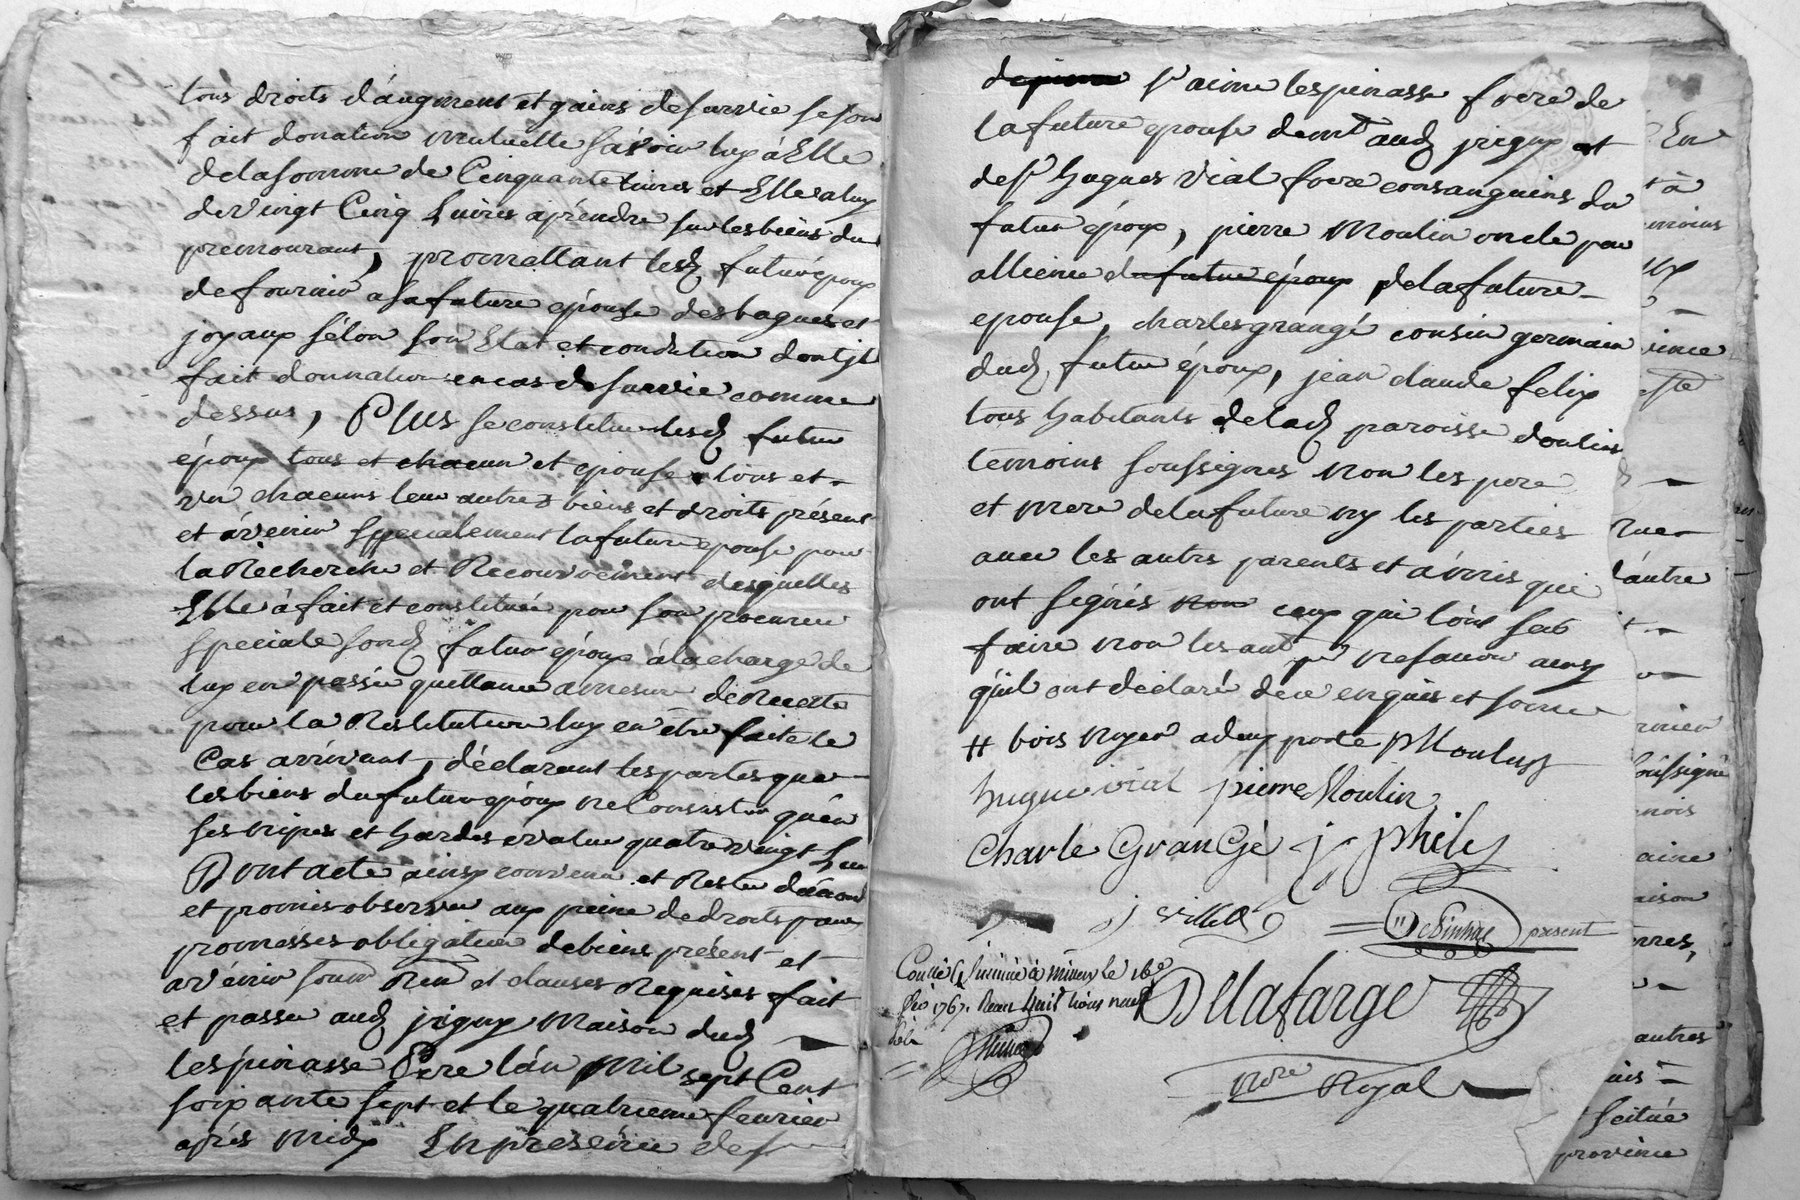 tous droits d'augment et gains de survie se son
fait donation mutuelle sávoir luy á Elle
de la somme de Cinquante livres et Elle a luy
de vingt Cinq Livres a préndre sur les biens du
premourant, promettant led futur époux
de fournir a sa future épouse des bagues et
joyaux sélon son Etat et condition dont jl
fait donnation en cas de survie comme
dessus, Plus se constitue lesd futur
époux tous et chacun et epouse tous et
un chacuns leur autres biens et droits présent
et ávenir specialement la future epouse pour
la Recherche et Recouvrement desquelles
Elle á fait et constitué pour son procureur
speciale sond futur époux á la charge de
luy en passer quittance a mesure de Recette
pour la Restitution luy en être faite le
Cas arrivant, déclarant les parties que
les biens du futur époux ne Consistent qu'én
ses nipes et hardes evalué quatre vingt Livre
Dont acte ainsy convenu et
et promis observer aux peine de droits par
promesses obligation de biens présent et
avénir soum Ren et clauses Requises fait
et passé aud jvigny Maison dud
lespinasse Pere l'an Mil sept Cent
soixante sept et le quatrieme fevrier
aprés Midy En presénce de sr
sr aime lespinasse frere de
la future epouse demt aud jvigny et
de sr hugues vial frere consanguins du
futur époux, pierre Moulin oncle par
allience du futur époux de la future
epouse, charles grangé cousin germain
dud futur époux, jean claude felix
tous habitants de lad paroisse doulins
temoins soussignés non les pere
et mere de la future ny les parties
avec les autres parents et ámis qui
ont signés non ceux qui l'ont seu
faire non les aut pr ne savoir ainsy
qu'il ont déclaré de ce enquis et somé
# bois noyer a deux porte PMoulin
hugue vial pierre Moulin
Charle GranGé j phily
j villet DeSinhas present
Conllé & jnsinué á le 16e
fév 1767. Reçu huit livres neuf
Delafarge
nore Royal
En
t à
moins
autre
soussigné
aire
aison
autres
scitué
province